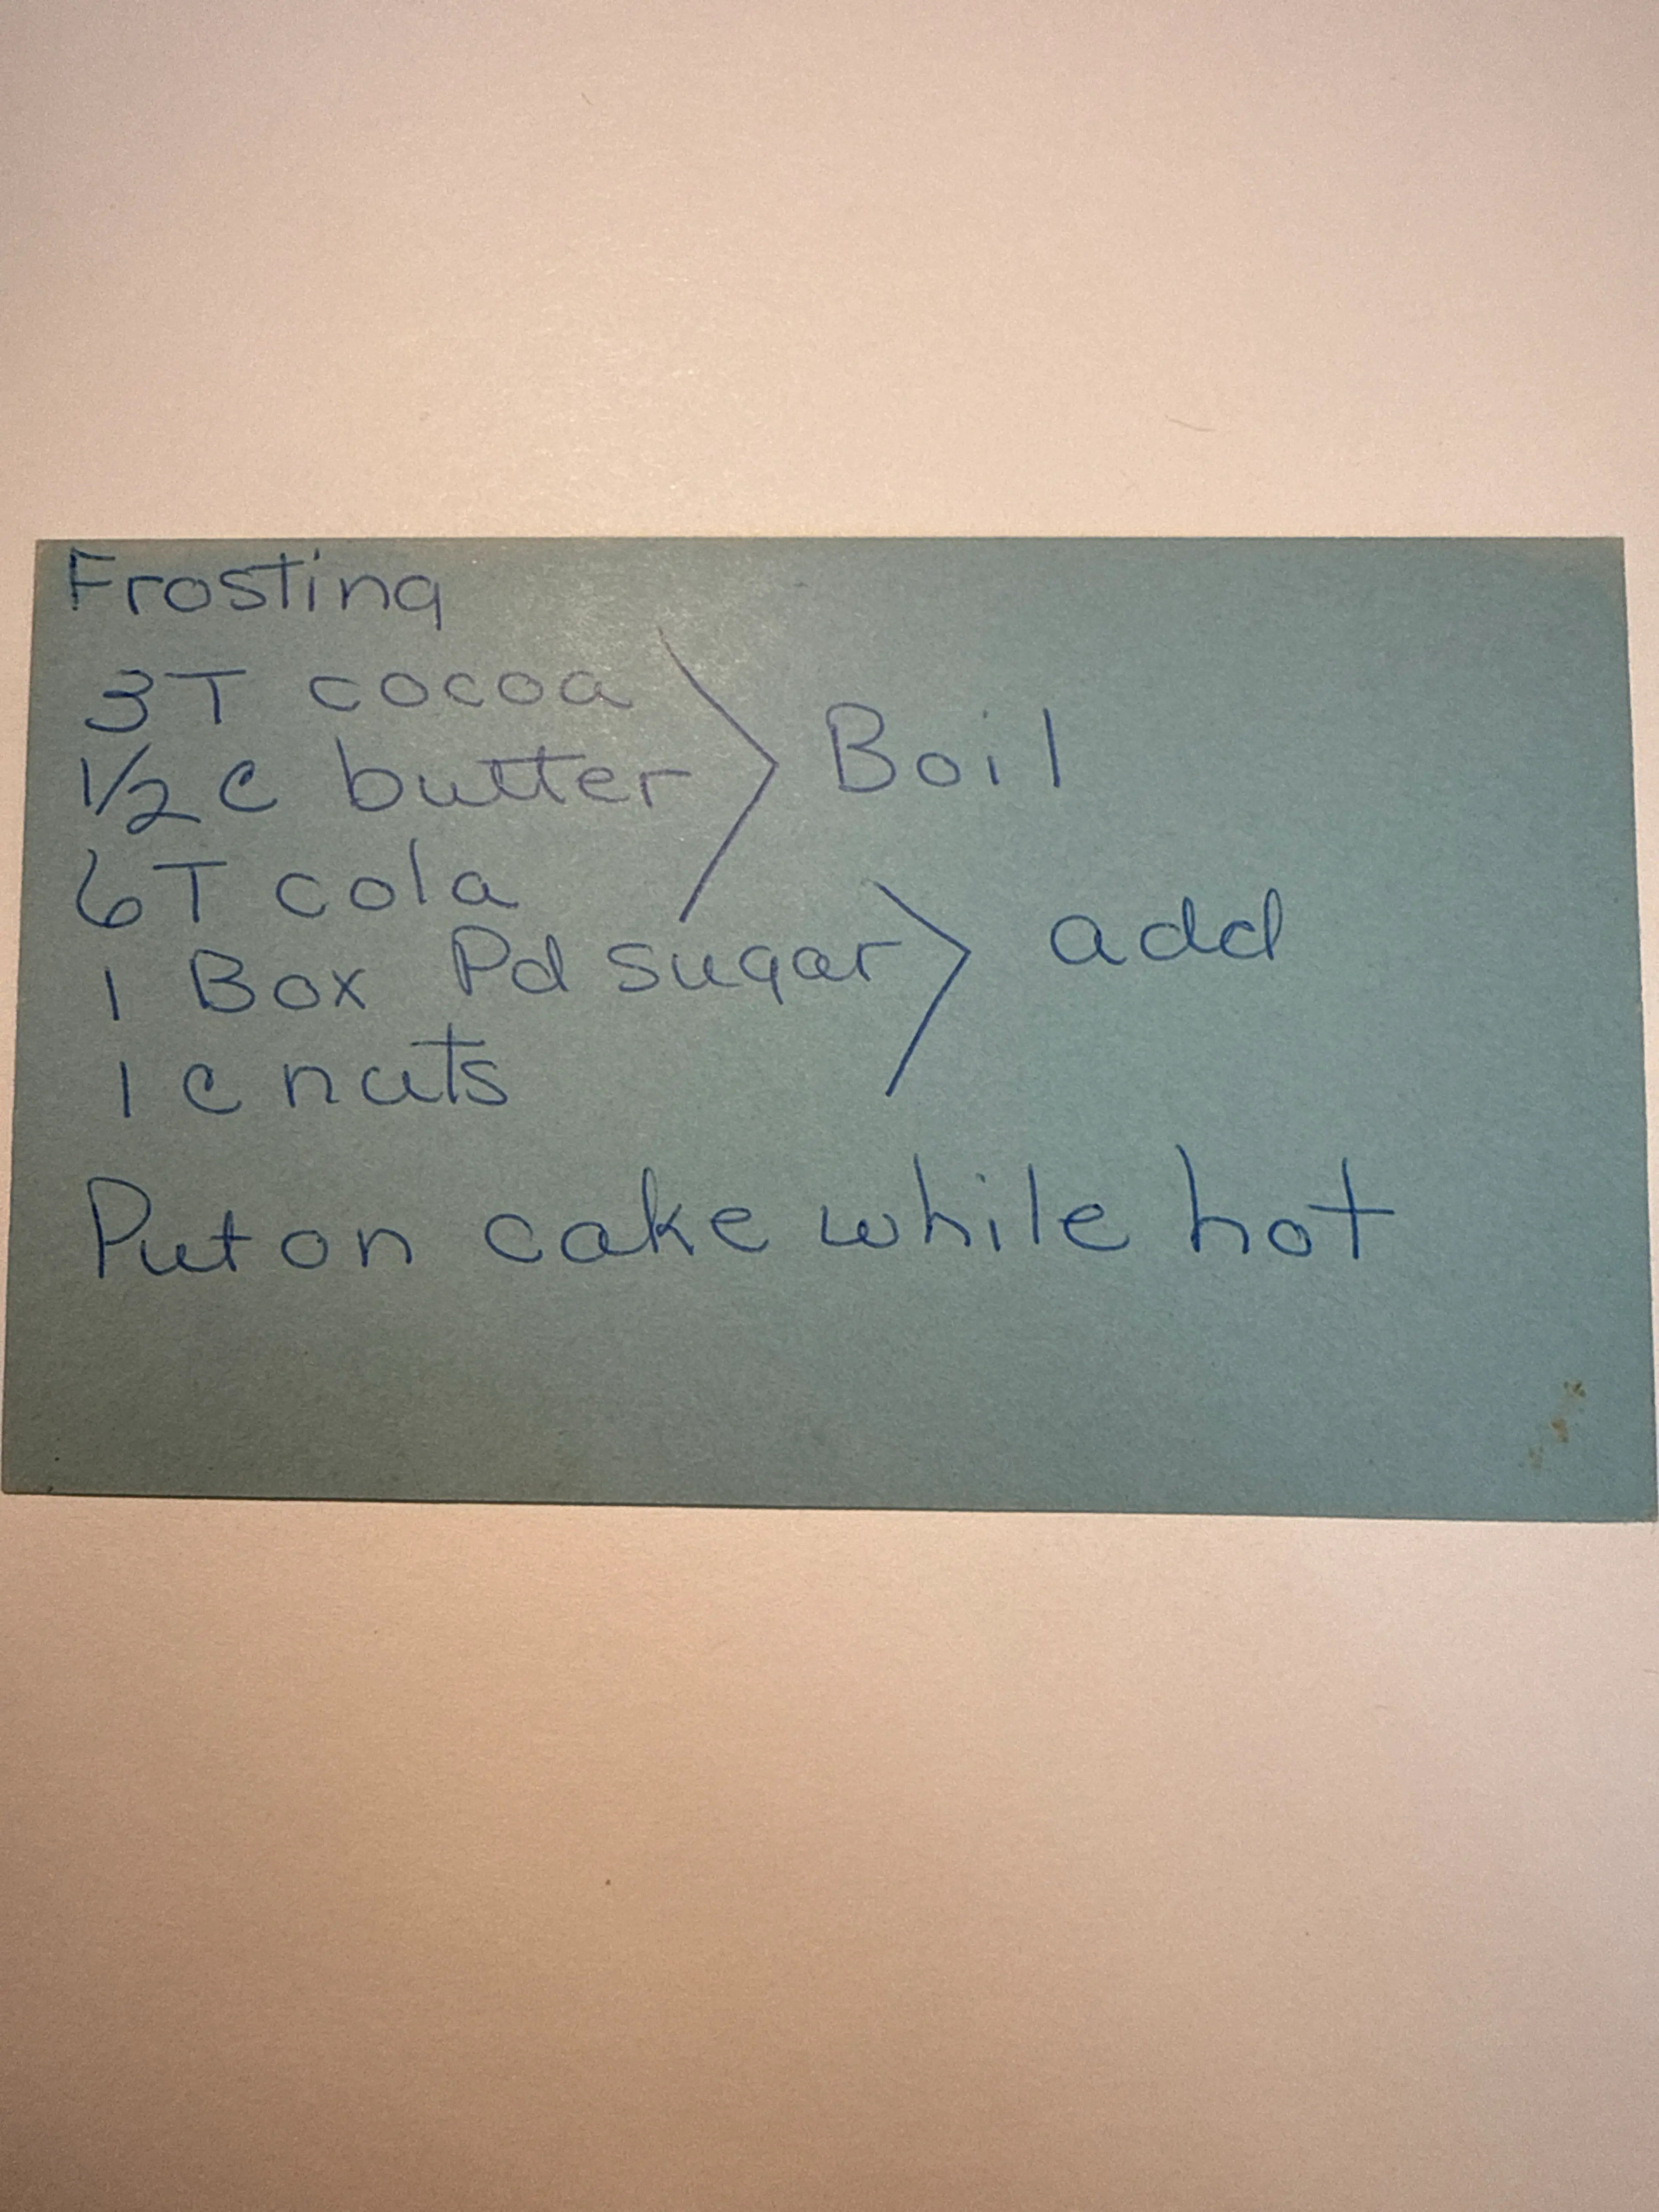 Frosting
3T cocoa
1/2 c butter
Boil
6T cola
1 Box Pd sugar
add
1 c nuts
Put on cake while hot